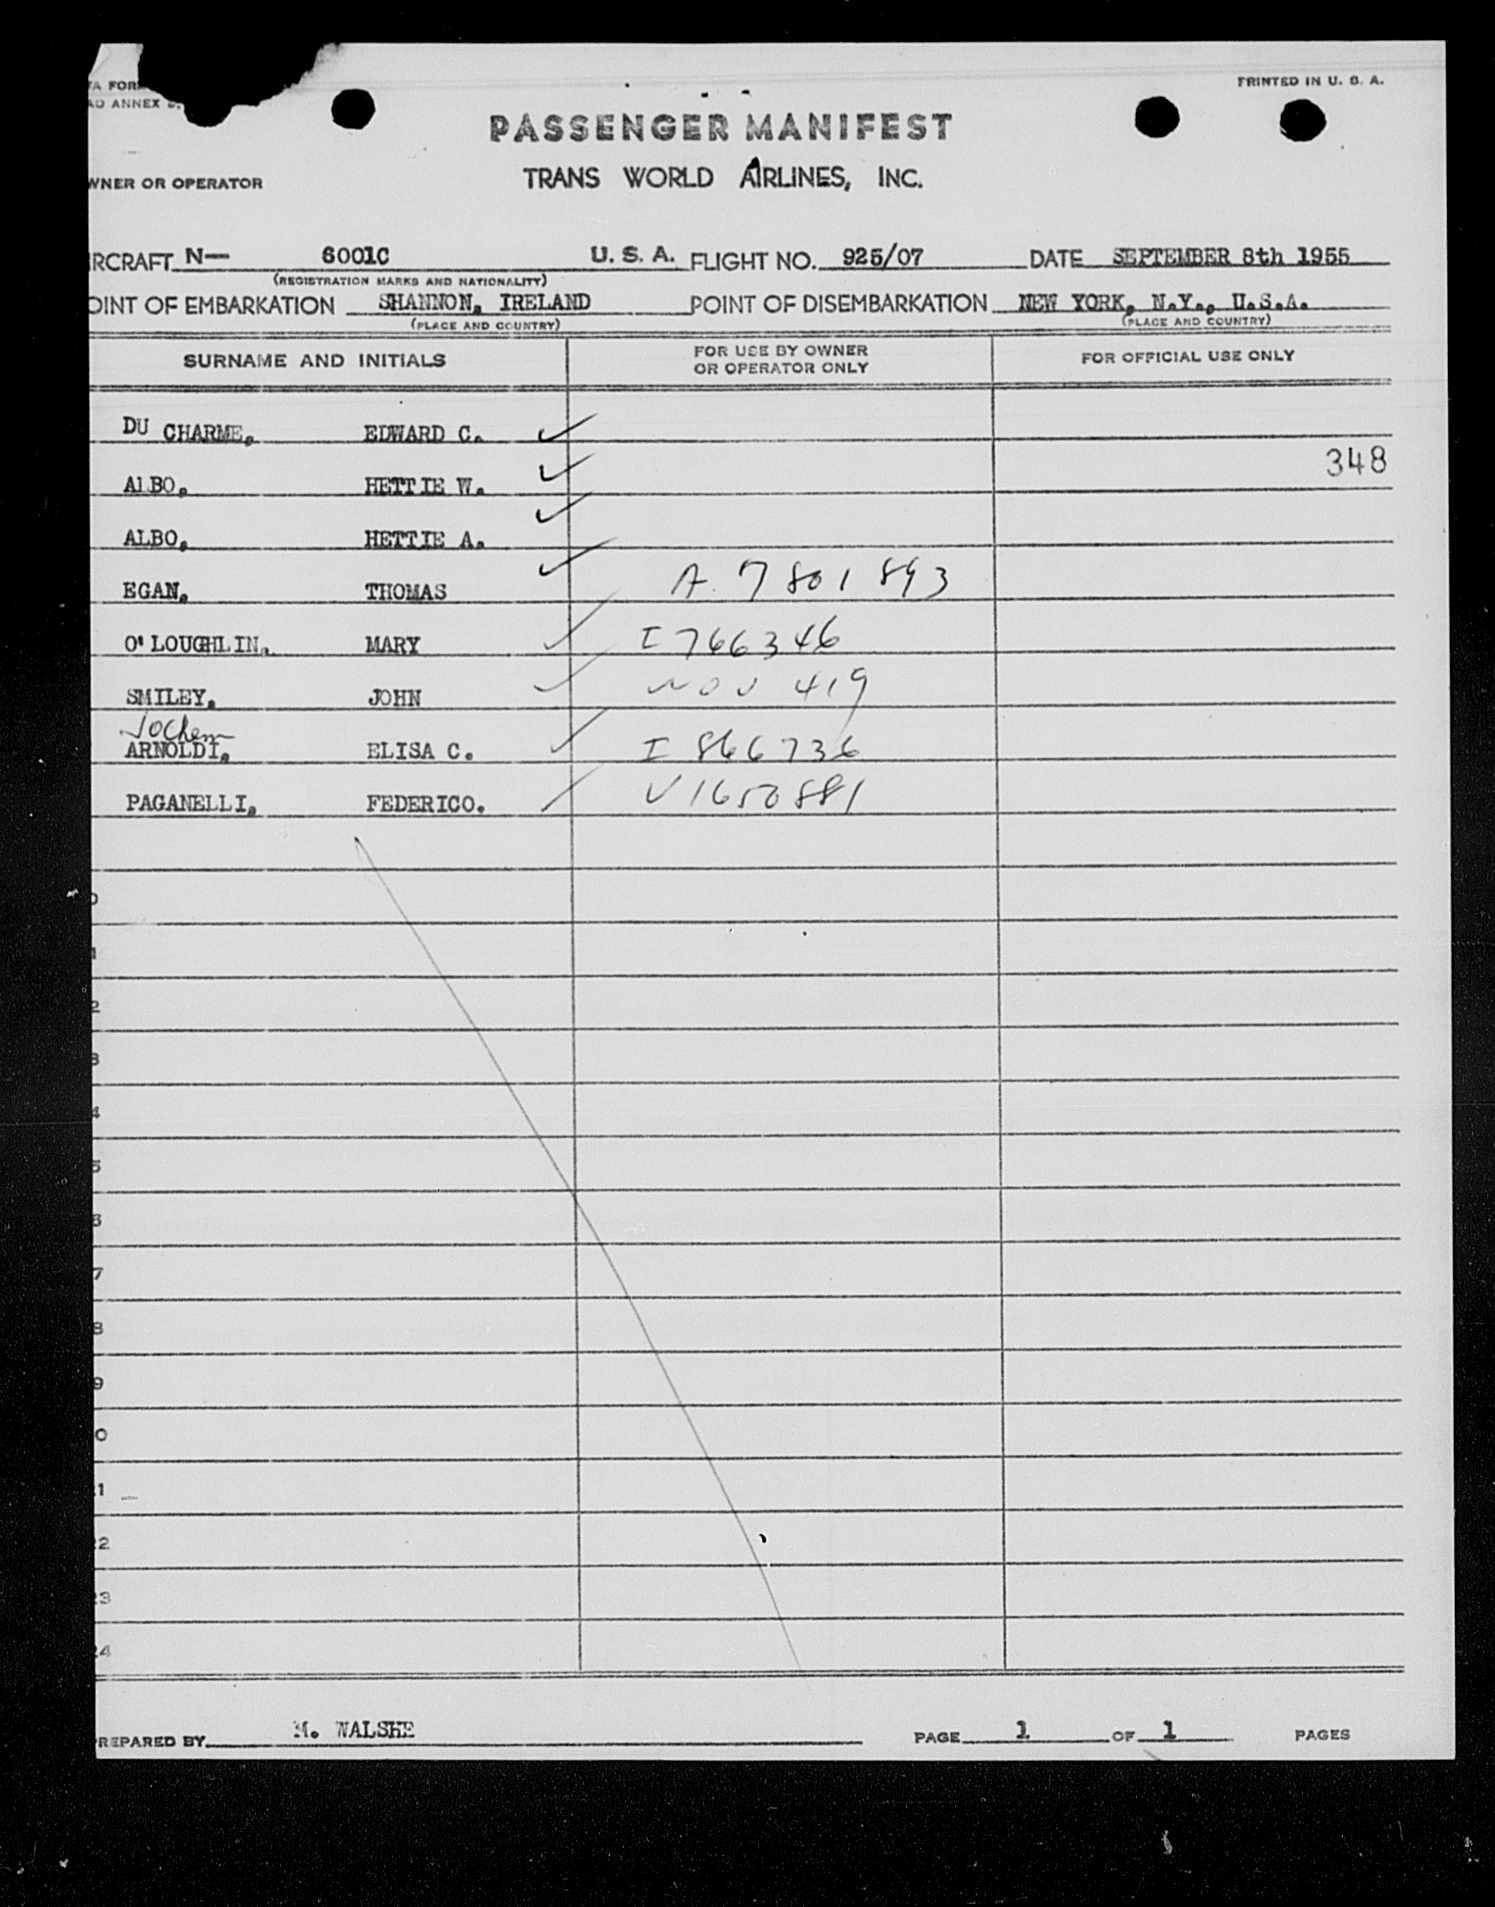 A FOR
AO ANNEX
PRINTED IN U. S. A.
PASSENGER MANIFEST
WNER OR OPERATOR
TRANS WORLD AIRLINES, INC.
IRCRAFT N- 6001C U. S. A. FLIGHT NO. 925/07 DATE SEPTEMBER 8th 1955
(REGISTRATION MARKS AND NATIONALITY)
OINT OF EMBARKATION SHANNON, IRELAND POINT OF DISEMBARKATION NEW YORK, N.Y., U.S.A.
(PLACE AND COUNTRY) (PLACE AND COUNTRY)
SURNAME AND INITIALS FOR USE BY OWNER OR OPERATOR ONLY FOR OFFICIAL USE ONLY
DU CHARME, EDWARD C. ✓
348
ALBO, HETTIE W. ✓
ALBO, HETTIE A. ✓
EGAN, THOMAS ✓ A. 7801893
O'LOUGHLIN, MARY ✓ I 766346
SMILEY, JOHN ✓ NOV 419
Jochem
ARNOLDI, ELISA C. ✓ I 866736
PAGANELLI, FEDERICO. ✓ V1650881
0
1
2
3
4
5
6
7
8
9
0
1
2
3
4
REPARED BY M. WALSHE PAGE 1 OF 1 PAGES